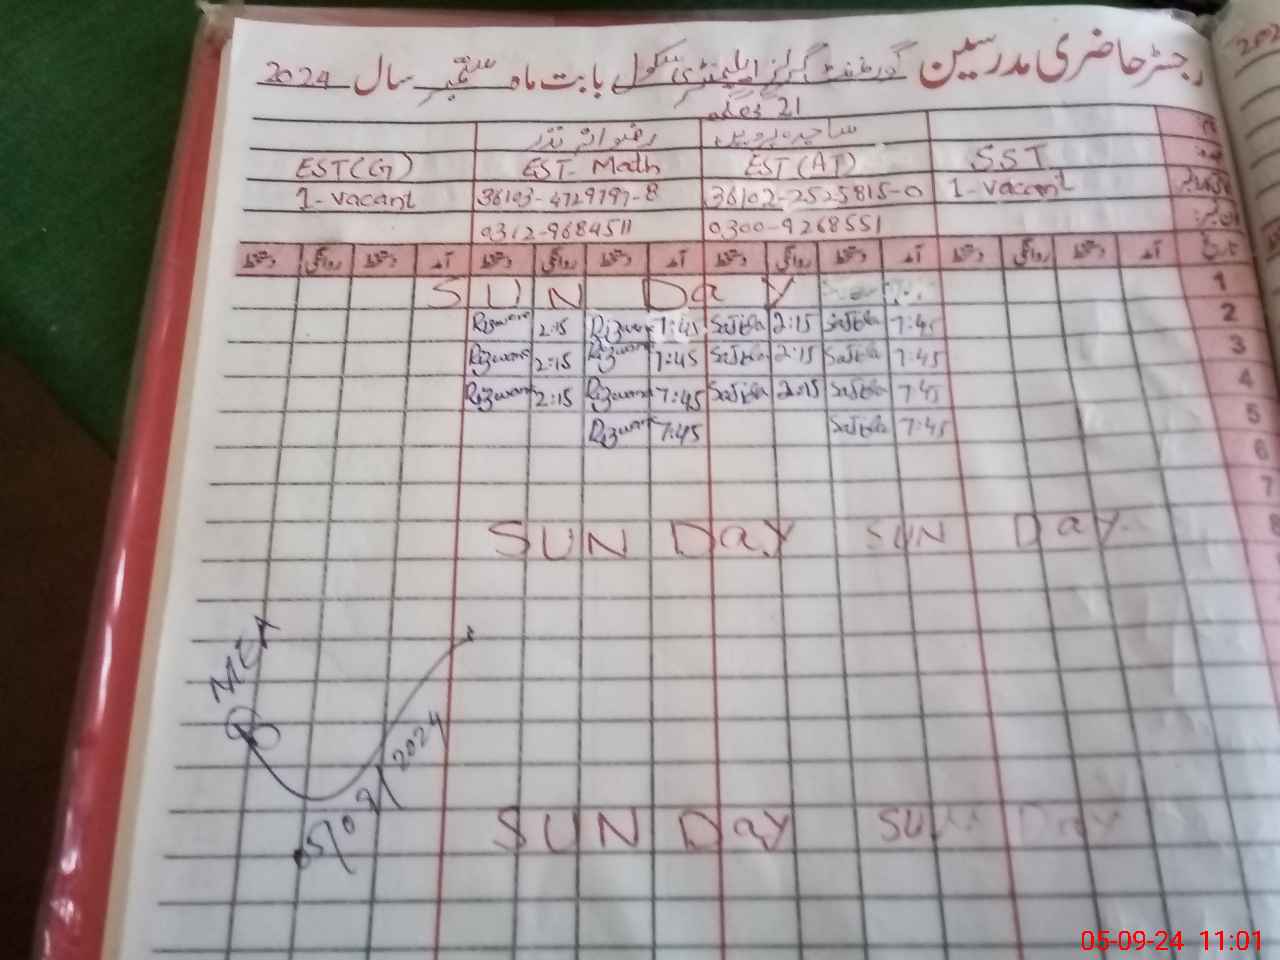 رجسٹر حاضری مدرسین گورنمنٹ گرلز ایلیمنٹری سکول بابت ماہ ستمبر سال 2024
21
ساجدہ پروین رضوانہ نذر
SST EST (AT) EST- Math EST (G)
1-vacant 36102-2525815-0 36103-4729797-8 1-vacant
0300-9268551 0312-9684511
تاریخ آمد دستخط روانگی دستخط آمد دستخط روانگی دستخط آمد دستخط روانگی دستخط آمد دستخط روانگی دستخط
1 SUN Day
2 7:45 Sajida 2:15 Sajida 7:45 Rizwana 2:15 Rizwana
3 7:45 Sajida 2:15 Sajida 7:45 Rizwana 2:15 Rizwana
4 7:45 Sajida 2:15 Sajida 7:45 Rizwana 2:15 Rizwana
5 7:45 Sajida 7:45 Rizwana
6
7
8 SUN Day SUN Day
MEA
05/09/2024
SUN Day SUN Day
05-09-24 11:01